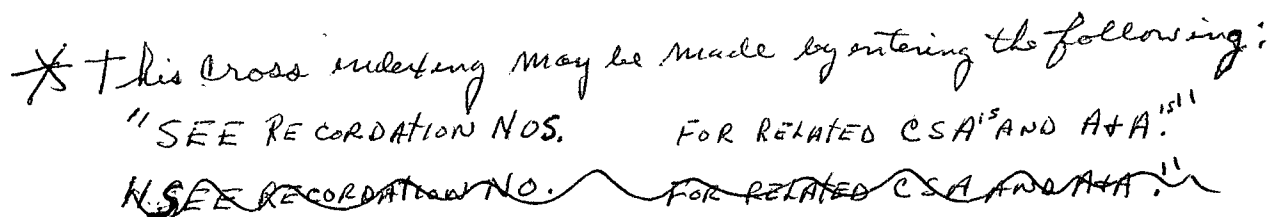 * This cross indexing may be made by entering the following:
"SEE RECORDATION NOS. FOR RELATED CSA's AND A&A's."
"SEE RECORDATION NO. FOR RELATED CSA AND A&A."